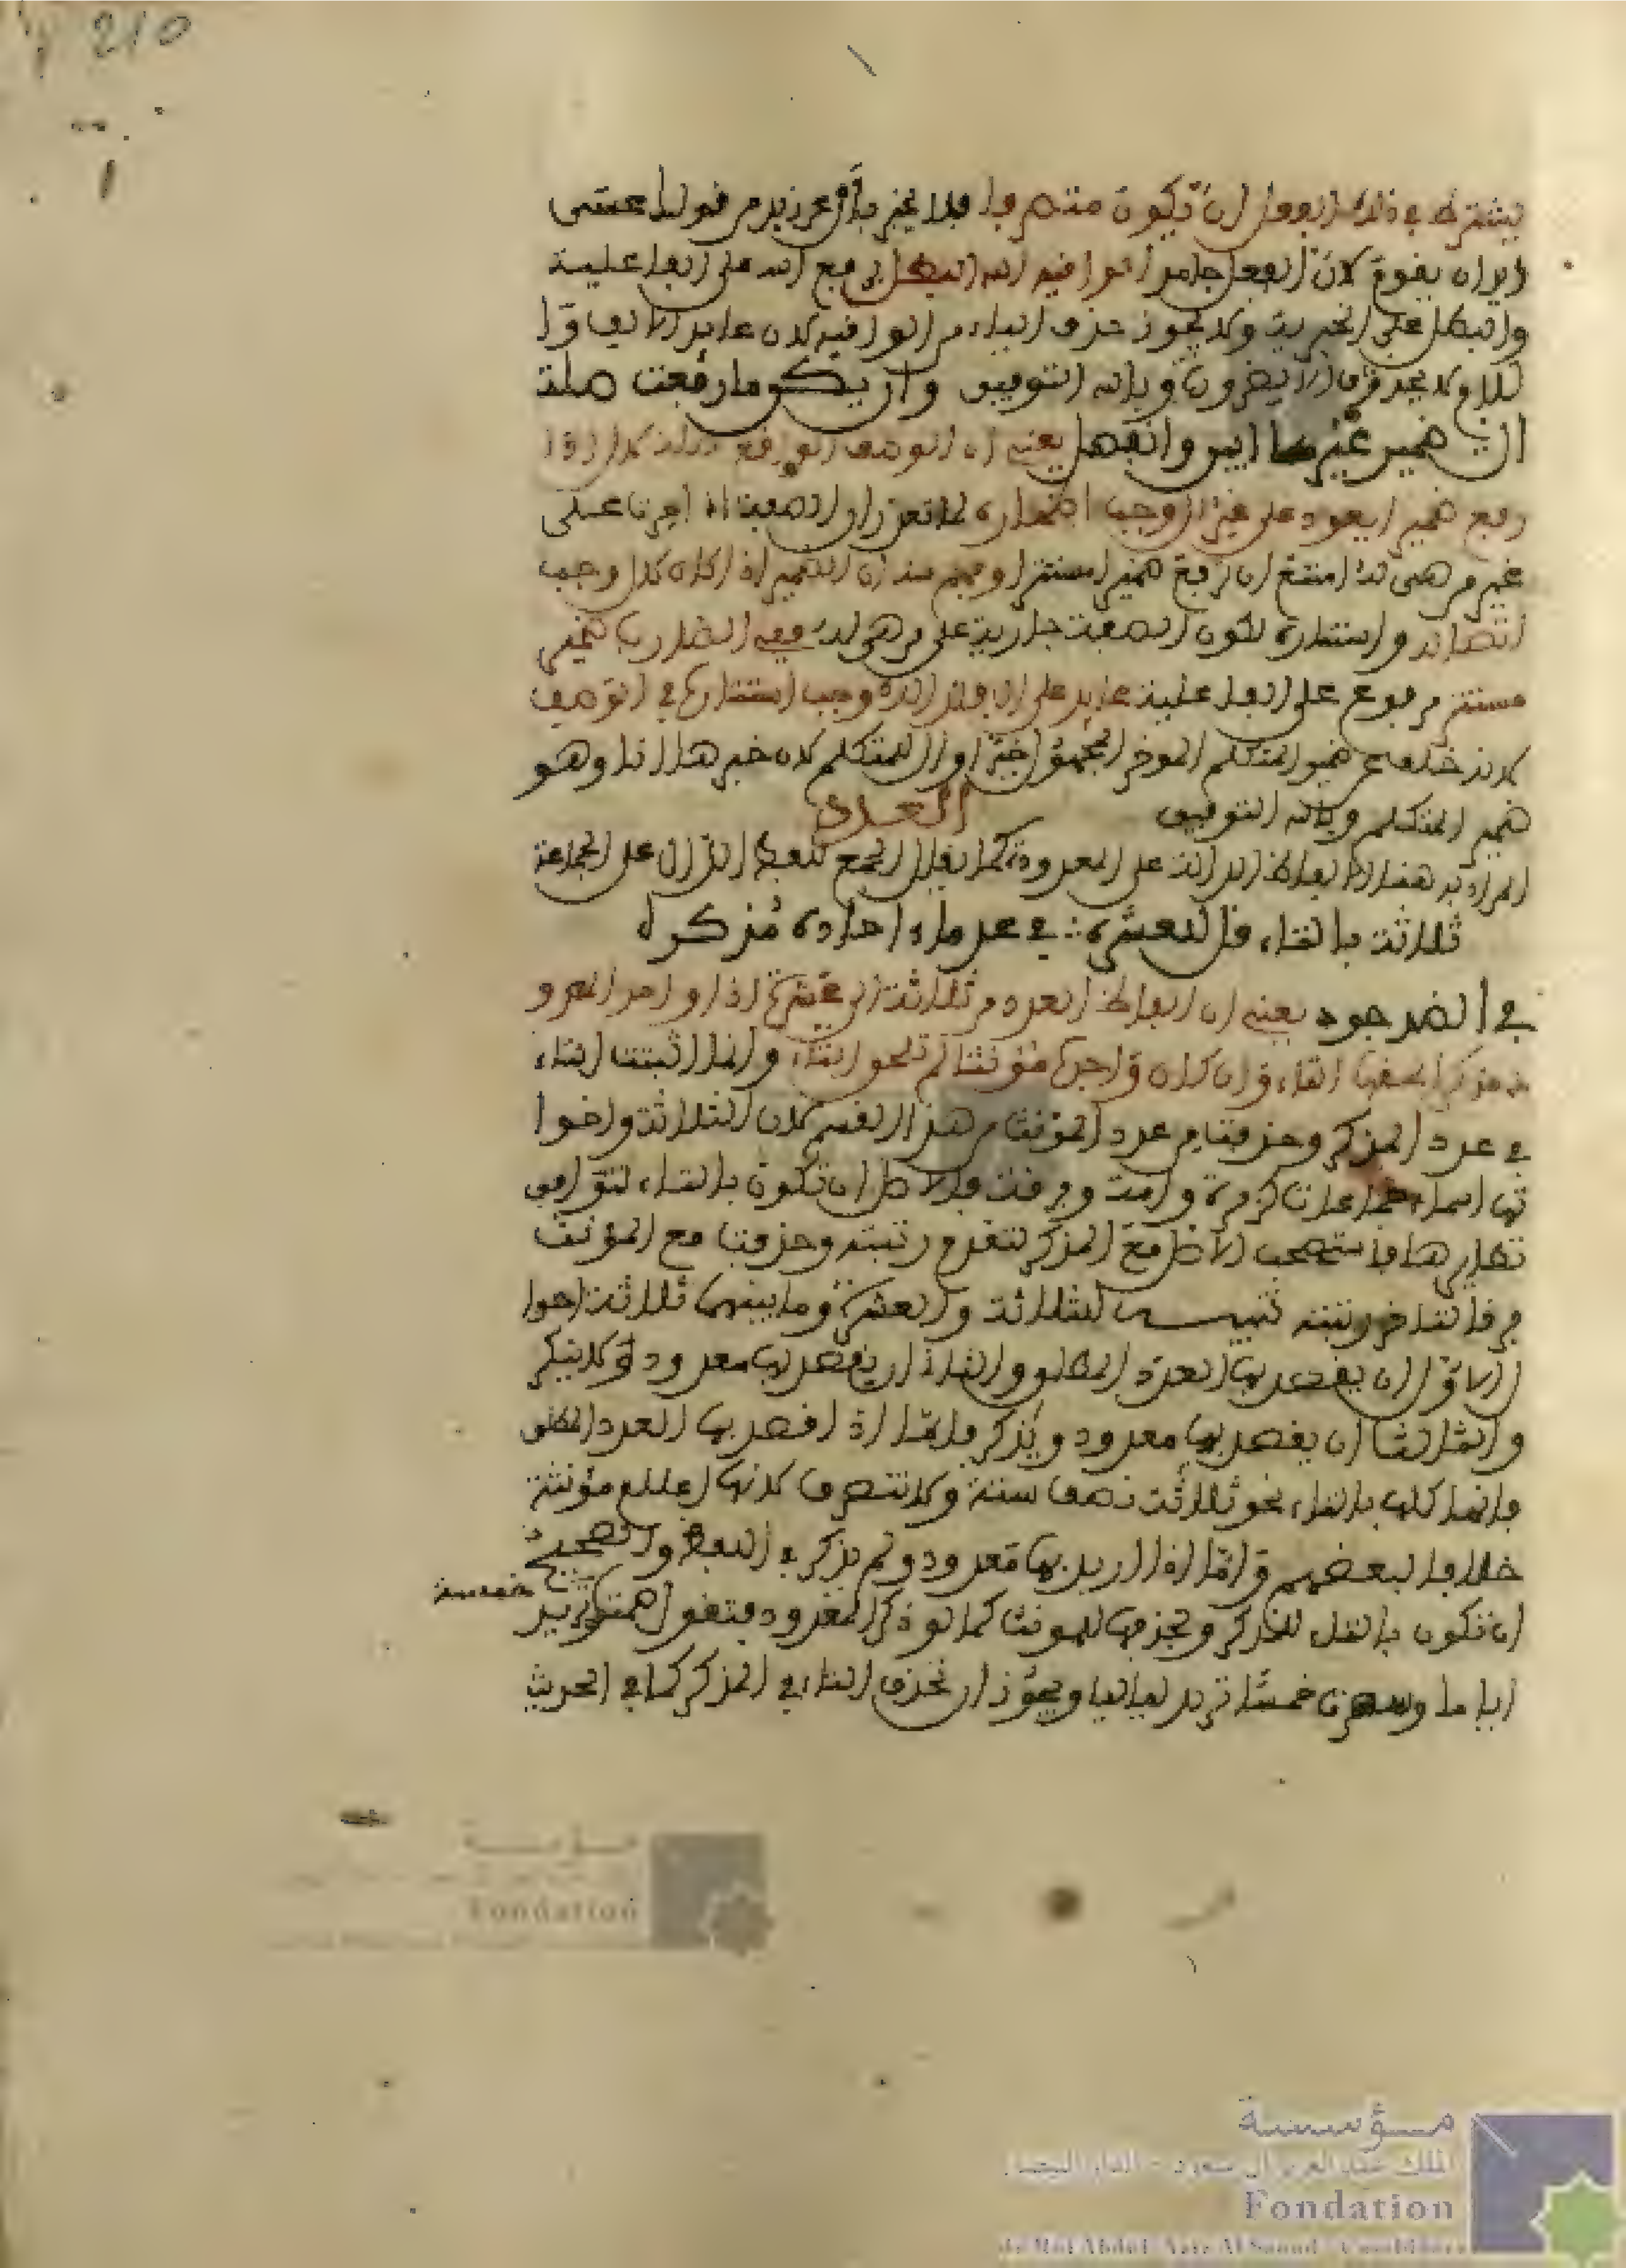 210
يشترط في ذلك الفعل أن يكون متصرفا فلا يخبر بأل عن زيد من قولك عسى
زيد ان يقوم لأن الفعل جامد الواقيه الله البطل برفع الله على الفاعلية
والبطل على الخبرية ولا يجوز حذف الهاء من الواقيه لان عائد الألف وا
للام لا يحذف الا ضرورة وبالله التوفيق وان يكن ما رفعت صلة
ال ضمير غيرها ابين وانفصل يعني ان الوصف الواقع صلة لال اذا
رفع ضميرا يعود على غير ال وجب اظهاره لما تقرر أن الصفة اذا جرت على
غير من هي له امتنع ان ترفع ضميرا مستترا وفهم منه أن الضمير اذا كان لال وجب
اتصاله واستتاره لكون الصفة جارية على من هي له ففي الضارب ضمير
مستتر مرفوع على الفاعلية عائد على ال فلذلك وجب استتاره في الوصف
لانه خلف عن ضمير المتكلم المؤخر المجعول خبرا وال للمتكلم لان خبرها انا وهو
ضمير المتكلم وبالله التوفيق العدد
المراد به هنا الالفاظ الدالة على المعدود كما يقال الجمع للفظ الدال على الجماعة
ثلاثة بالتاء قل للعشره في عد ما احاده مذكره
في الضد جرد يعني ان الفاظ العدد من ثلاثة الى عشرة اذا واحد المعدو
د مذكرا لحقتها التاء وان كان واحدها مؤنثا لم تلحق التاء وانما اثبتت التاء
في عدد المذكر وحذفت من عدد المؤنث من هذا القسم لان الثلاثة واخوا
تها اسماء جماعات كزمرة وامة وفرقة فالاصل ان تكون بالتاء لتوافق
نظائرها فاستصحب الاصل مع المذكر لتقدم رتبته وحذفت مع المؤنث
فرقا لتاخر رتبته تنبيه لثلاثة والعشرة وما بينهما ثلاثة احوا
ل الاول ان يقصد بها العدد المطلق والثاني ان يقصد بها معدود ولا يذكر
والثالث ان يقصد بها معدود ويذكر فاما اذا قصد بها العدد المطلق
فانها كلها بالتاء نحو ثلاثة نصف ستة ولا تنصرف لانها اعلام مؤنثة
خلافا لبعضهم واما اذا اريد بها معدود ولم يذكر في اللفظ والصحيح
ان تكون بالتاء للمذكر وبحذفها للمؤنث كما لو ذكر المعدود فتقول صمت خمسة تريد
اياما وسهرت خمسا تريد لياليا ويجوز ان تحذف التاء في المذكر كما في الحديث
مؤسسة
Fondation
مؤسسة
الملك عبد العزيز آل سعود - الدار البيضاء
Fondation
du Roi Abdul-Aziz Al Saoud - Casablanca